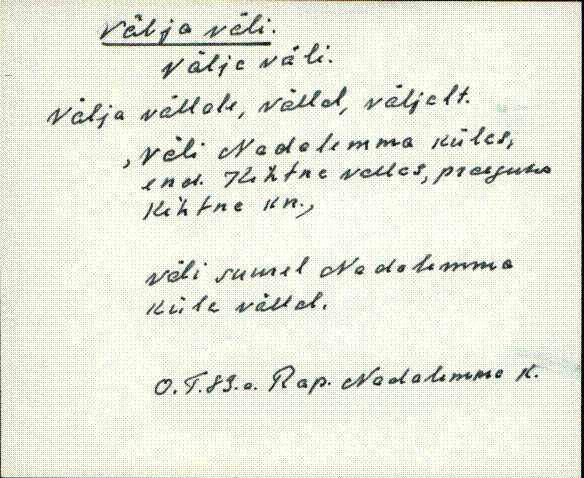 Välja väli.
Välja väli.
Välja vällale, vällal, väljalt.
, Väli Nadalemma külas,
end. Kehtna vallas, praeguse
Kehtna kn.,
väli suurel Nadalemma
küla vällal.
O.T.89.a. Rap. Nadalemma k.